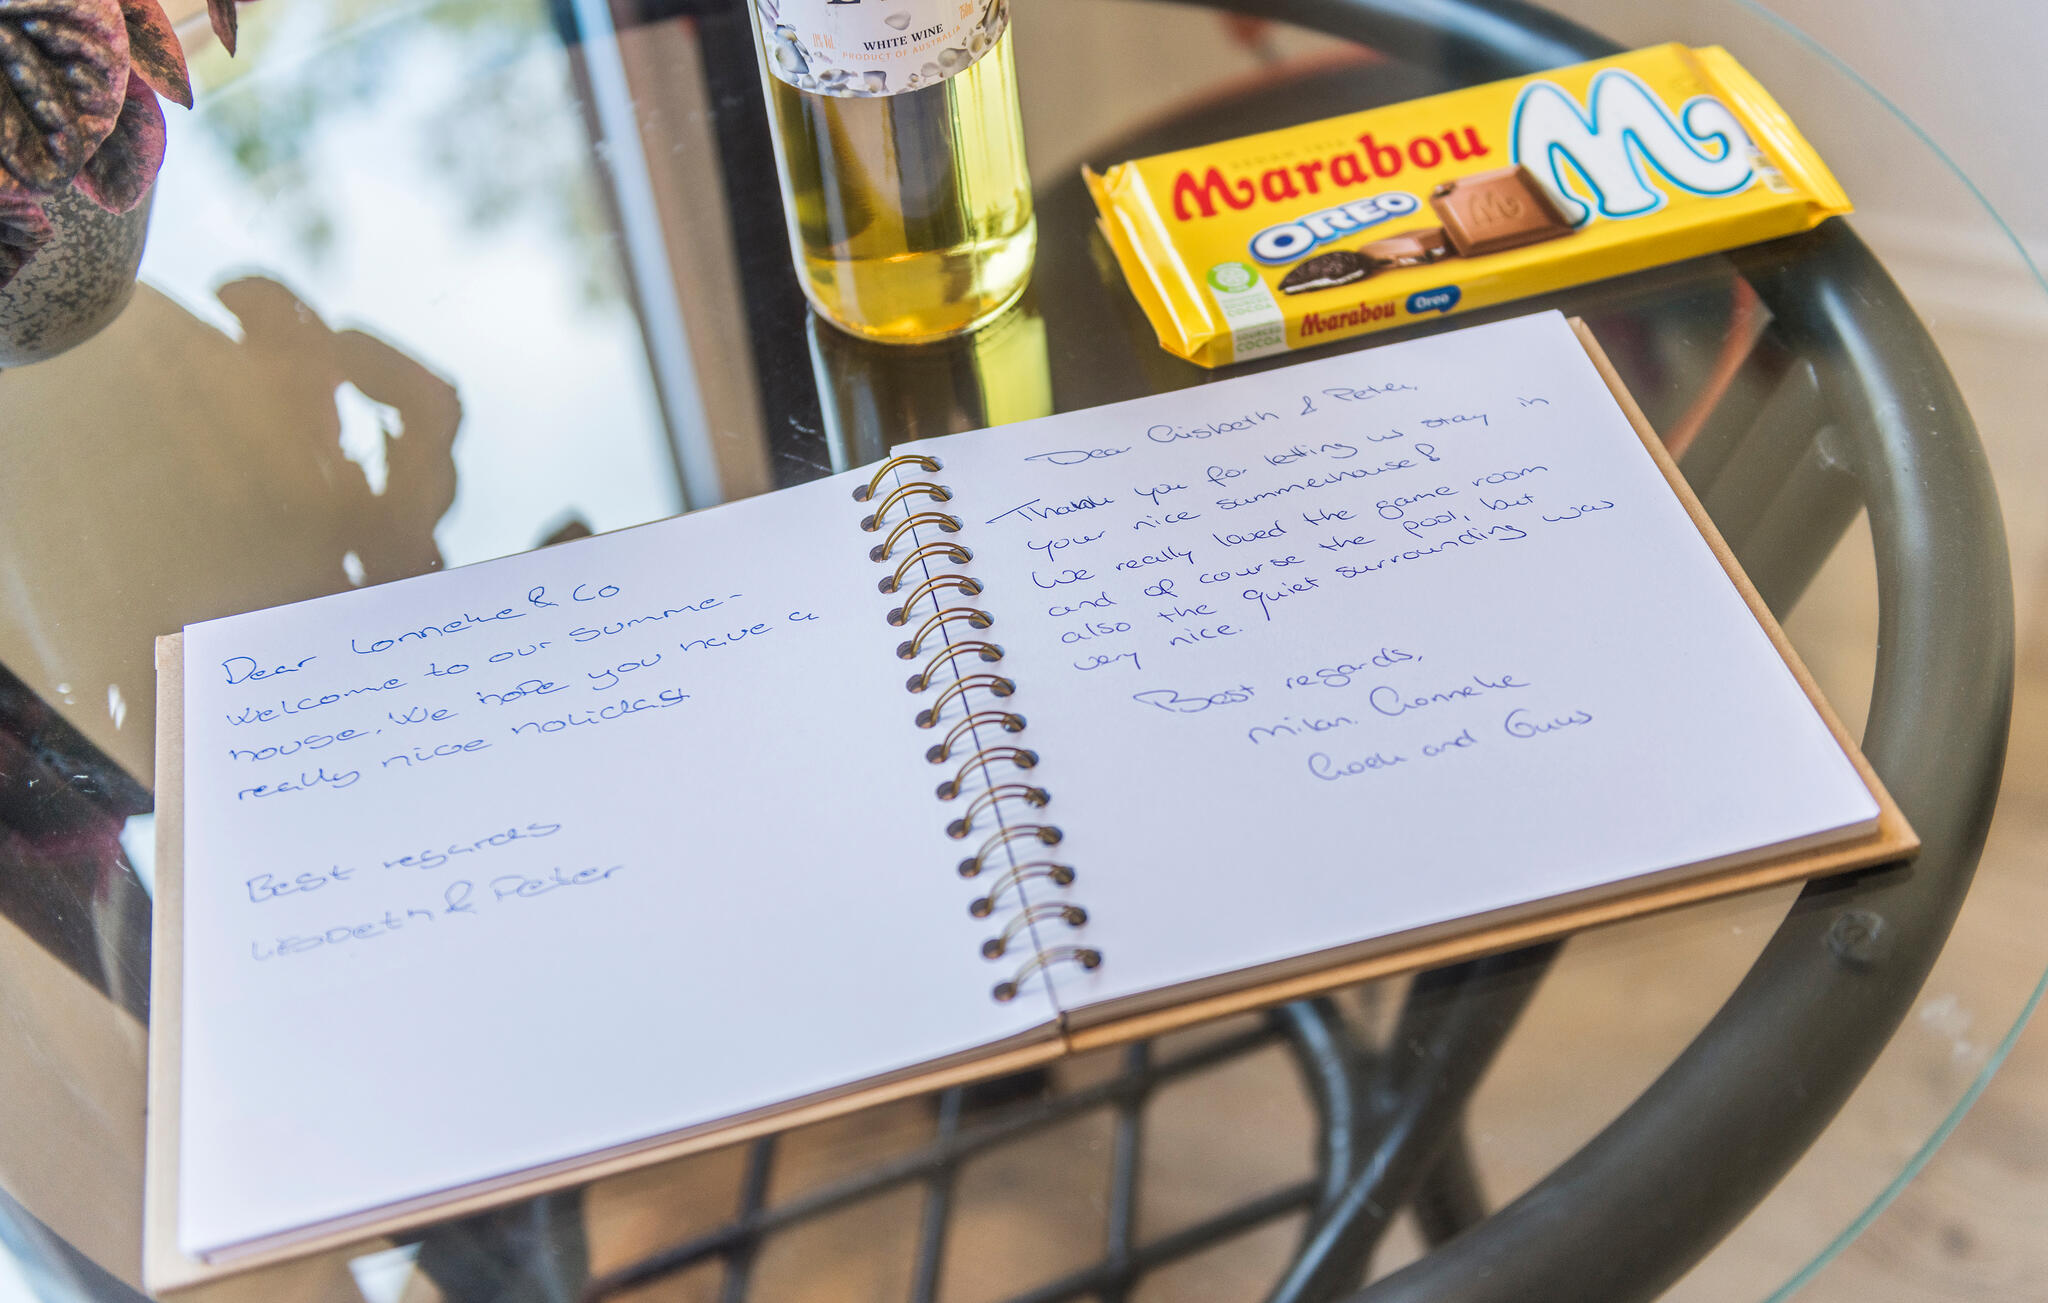 WHITE WINE
PRODUCT OF AUSTRALIA
11% Vol.
750ml
Marabou
OREO
COCOA
SOURCED
COCOA
Marabou Oreo
Dear Lonneke & Co
Welcome to our summe-
house. We hope you have a
really nice holiday
Best regards
Lisbeth & Peter
Dear Lisbeth & Peter,
Thank you for letting us stay in
your nice summerhouse!
We really loved the game room
and of course the pool, but
also the quiet surrounding was
very nice.
Best regards,
Milan, Lonneke
and Guus